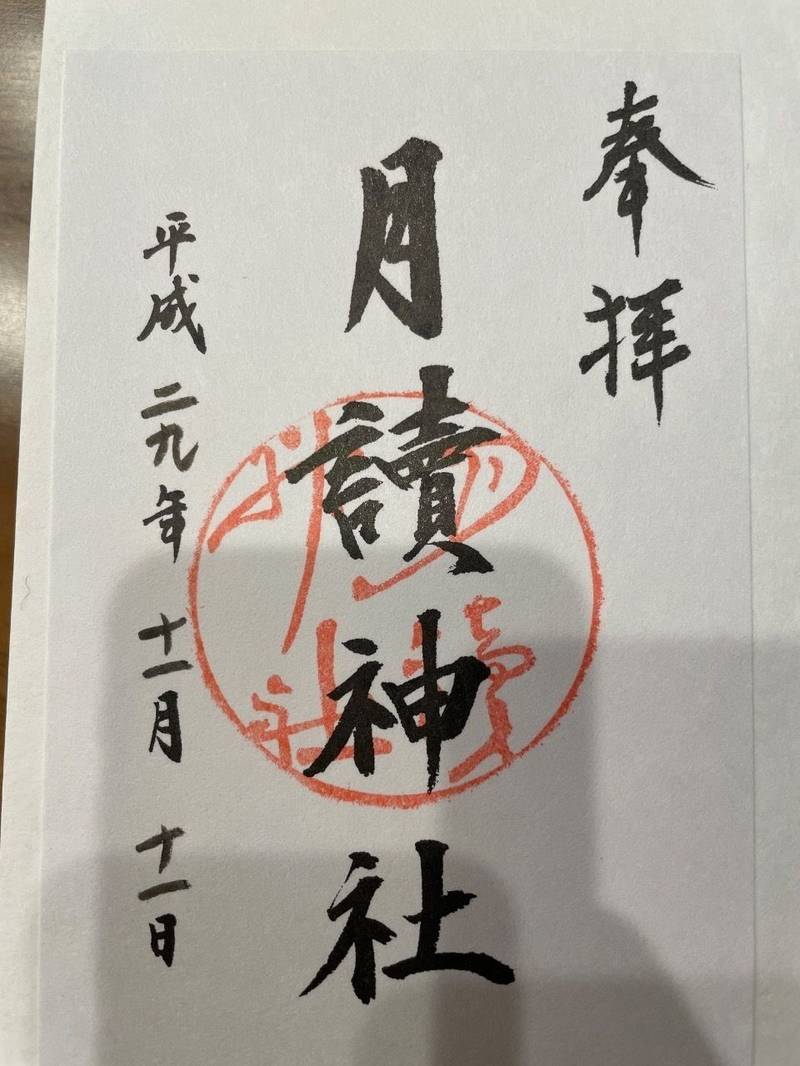 奉拝
月讀神社
平成二九年十一月十一日